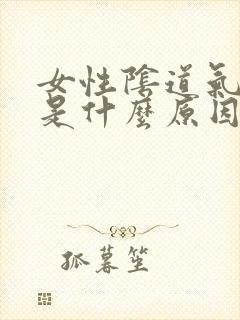 女性陰道氣
是什麼原因
孤暮笙